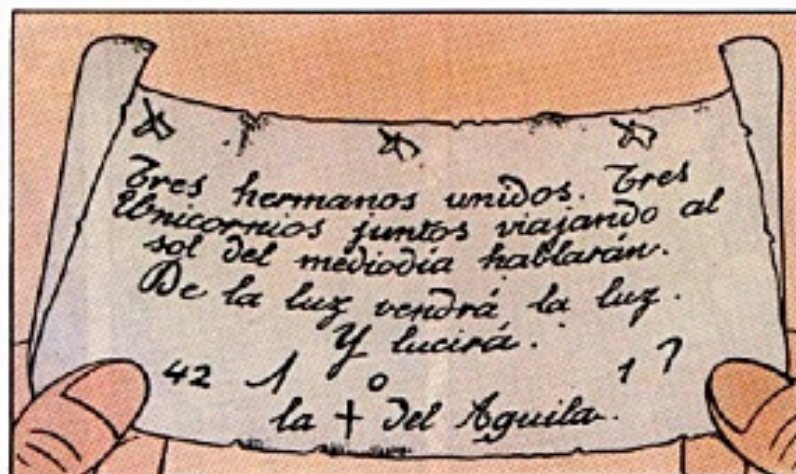 Tres hermanos unidos. Tres
Unicornios juntos viajando al
sol del mediodía hablarán.
De la luz vendrá la luz.
Y lucirá.
42 1 o 1 7
la + del Aguila.